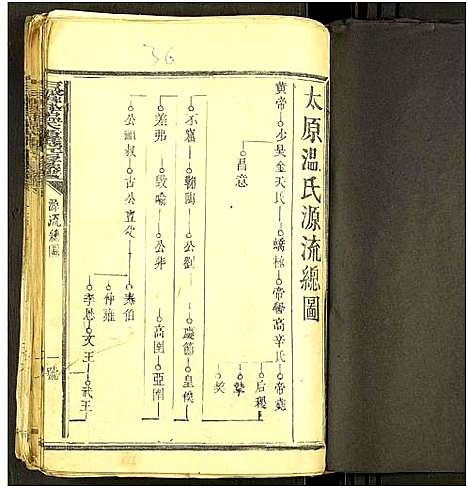 36
太原温氏源流總圖
黃帝 少昊金天氏 蟜極 帝嚳高辛氏 帝堯
昌意
后稷
摯
契
不窋 鞠陶 公劉 慶節 皇僕
差弗 毀喻 公非 高圉 亞圉
公叔 古公亶父 泰伯
仲雍
季歷 文王 武王
源流總圖